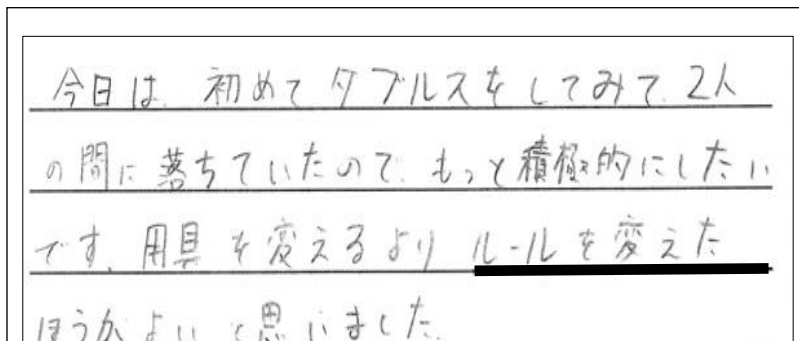 今日は、初めてダブルスをしてみて、2人
の間に落ちていたので、もっと積極的にしたい
です。用具を変えるよりルールを変えた
ほうがよいと思いました。